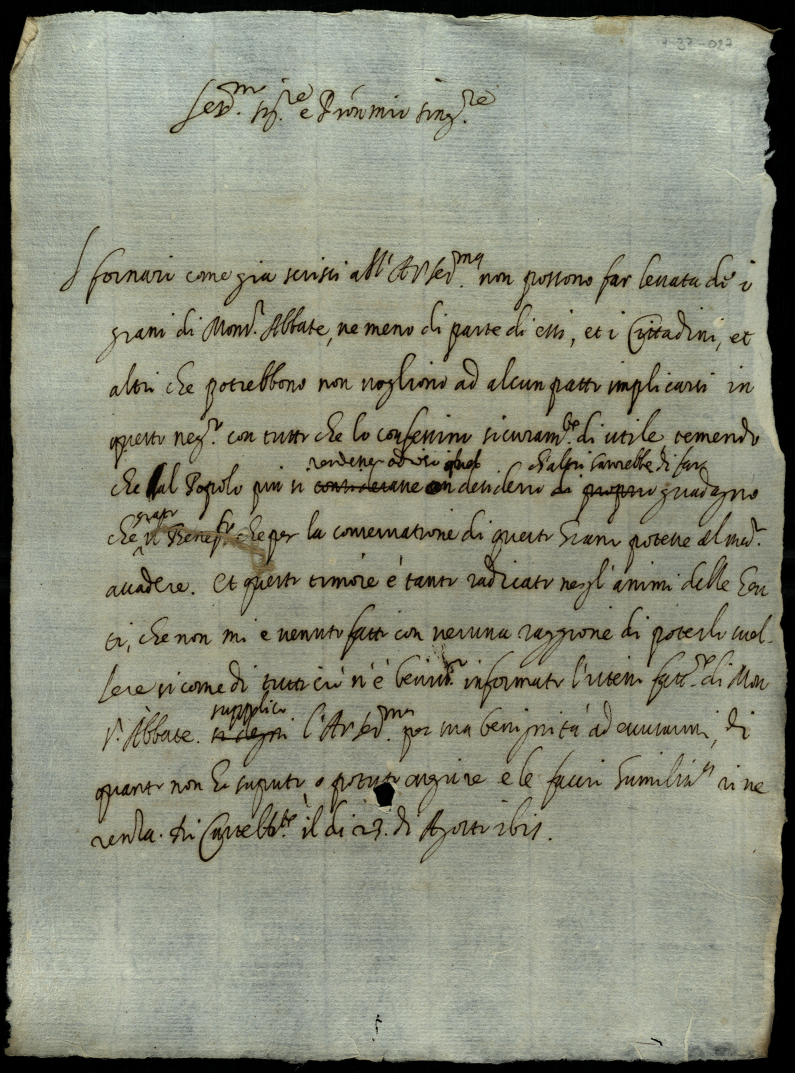 Ser.mo Sig.re e Pròn mio sing.re
I fornari come gia scrissi all' A V Ser.ma non possono far levata de i
grani di Mons.r Abbate, ne meno di parte di essi, et i Cittadini, et
altri che potrebbono non vogliono ad alcun patto implicarsi in
questo neg.o con tutto che lo confessino sicuram.te di utile temendo
rendesse odioso quel ch'altri sarrebbe di far
che al Popolo piu si desiderio di proprio guadagno
grato
che il Benef.o che per la conservatione di questi Grani potesse al med.o
accadere. Et questo timore é tanto radicato negl' animi delle Gen
ti, che non mi e venuto fatto con veruna raggione di poterlo svel-
lere si come di tutto ciò n' é beniss.o informato l'istesso fatt.re di Mon
supplico
s.r Abbate. si degni l'A V Ser.ma per sua benignità ad avvisarmi, di
quanto non hò saputo o potuto esseguire e le facio humiliss.a rive
renza. Di Castelb.te il di 23. di Agosto 1611.